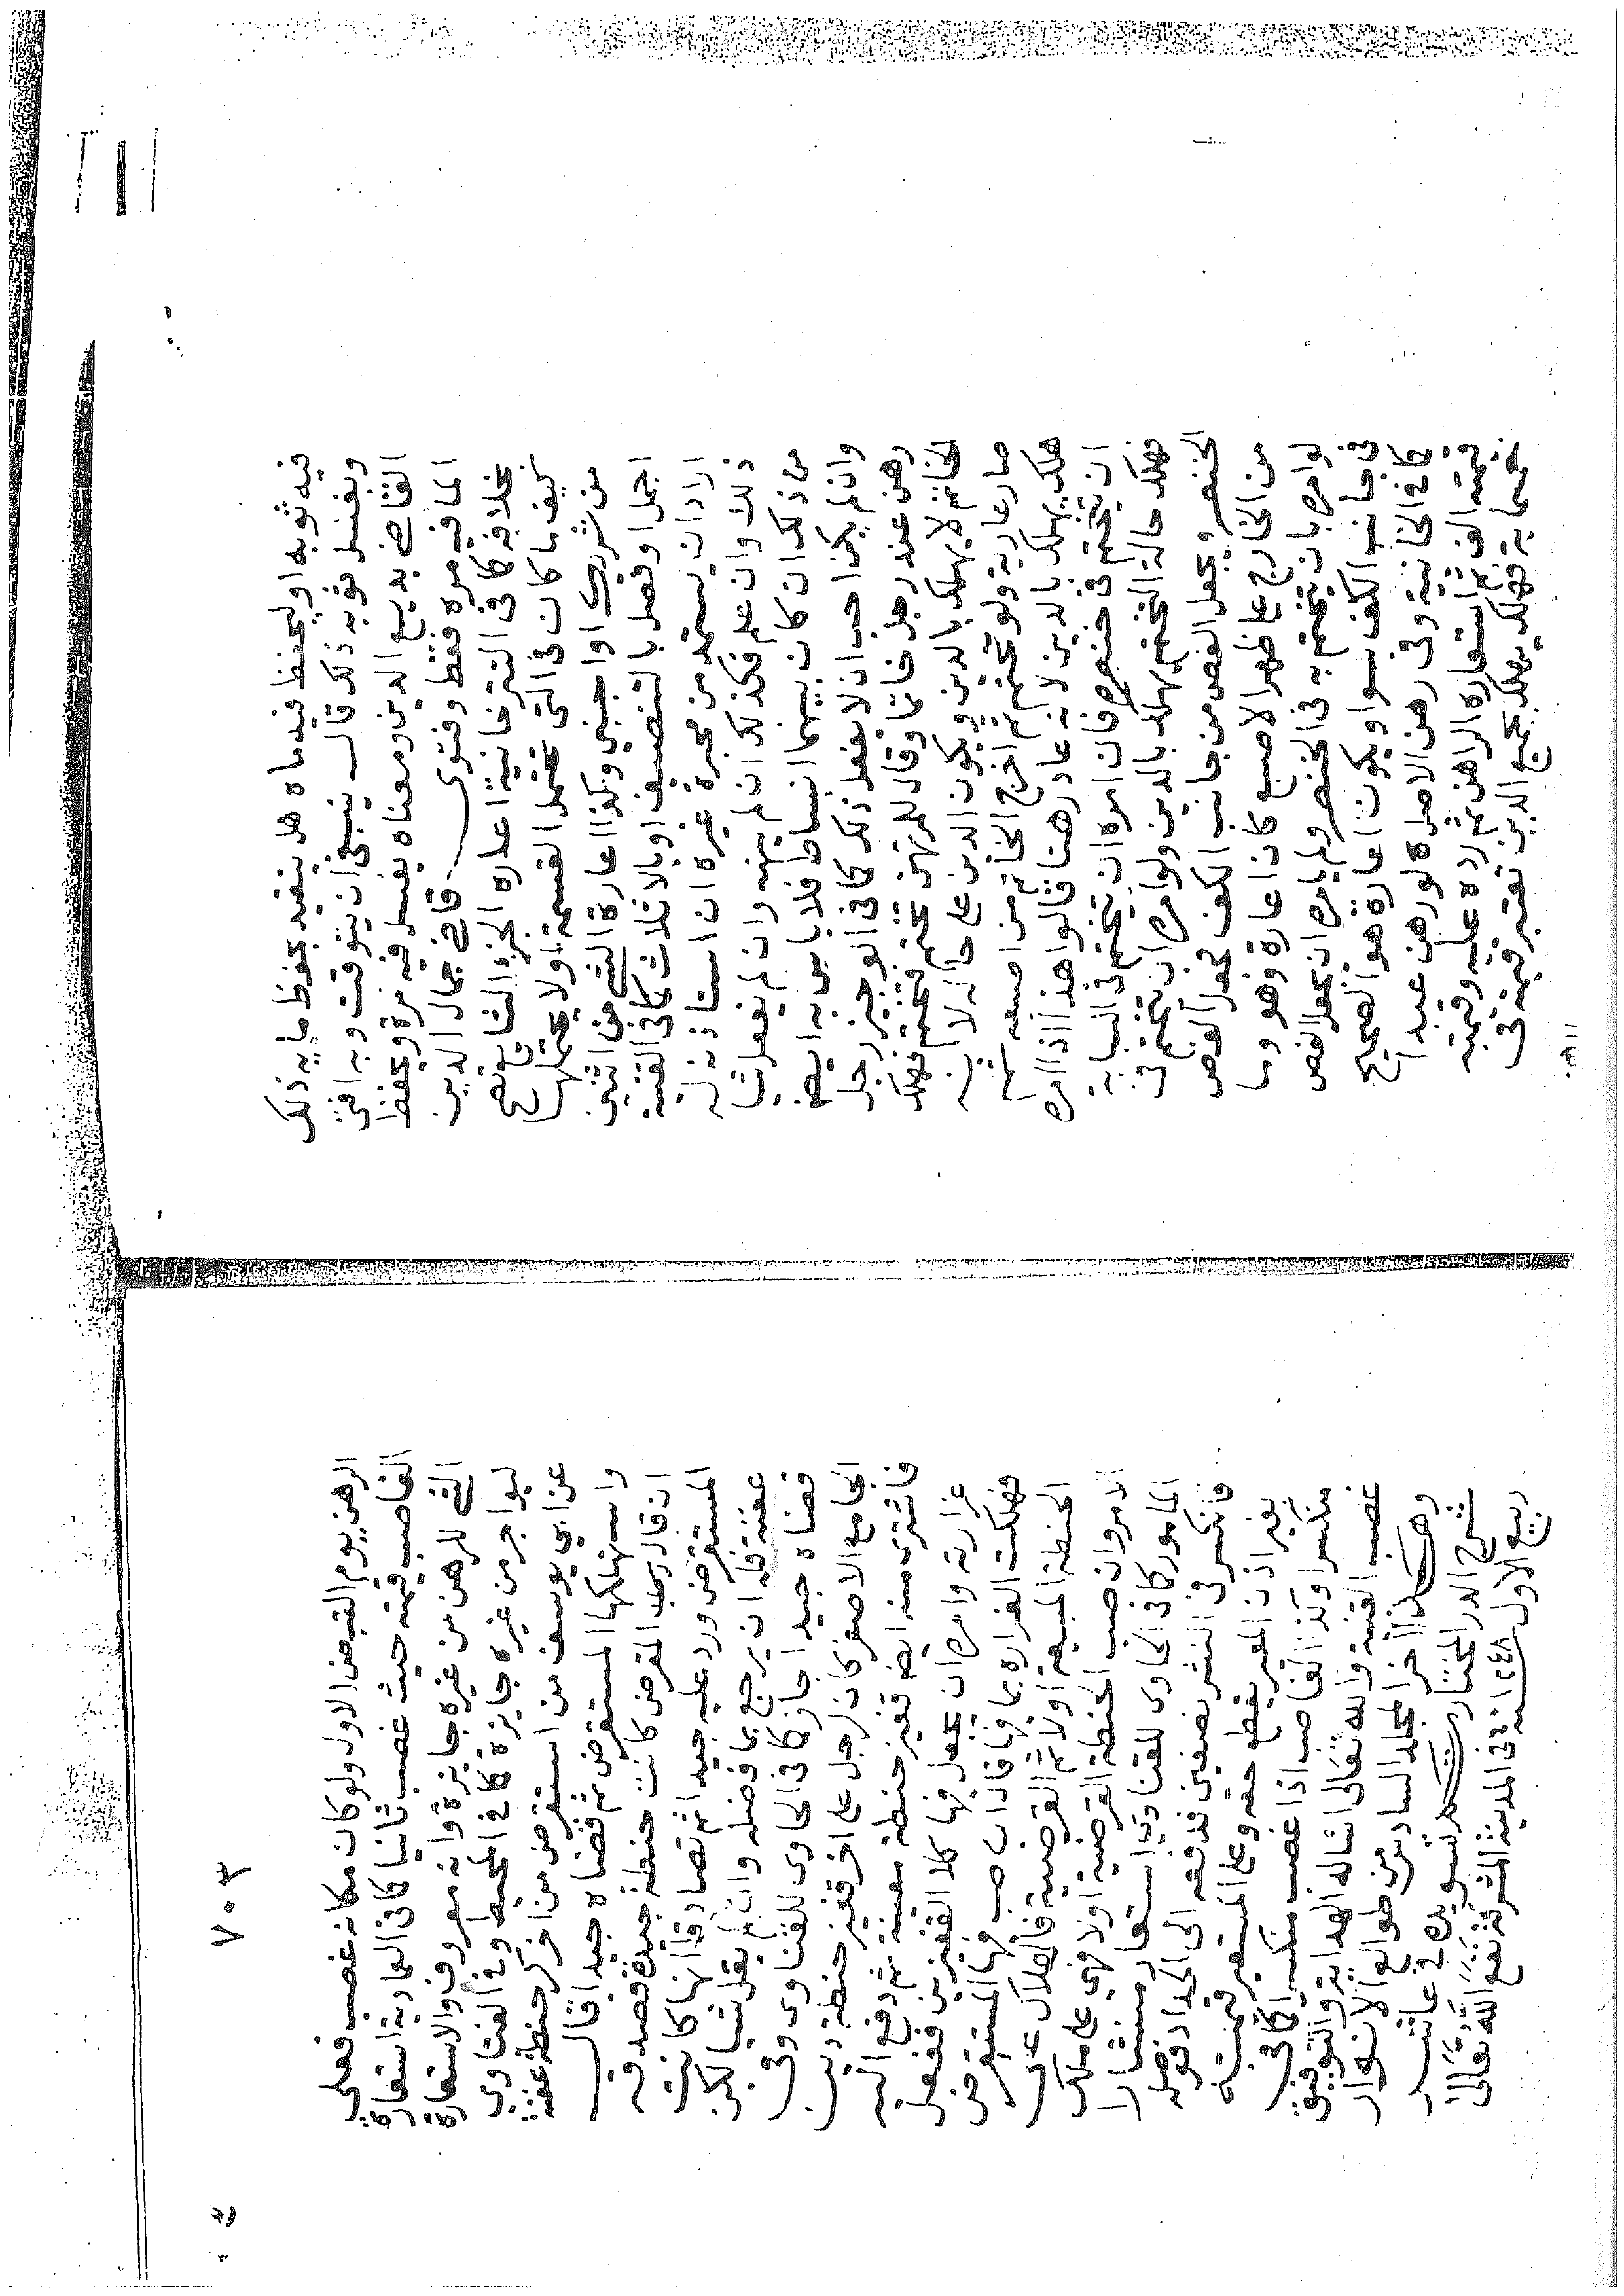 فيه ثوبه او ليحفظ فيه ماه هل يتقيد بحفظ ما به ذلك
وبغسل ثوبه ذلك قال ينبغي ان يتوقت وبه افتى
القاضي بديع الدين ومعناه يغسل فيه مرة ويحفظ
الما فيه مره فقط وفتوى قاضي جمال الدين
بخلافه كما في التترخانية اعاره الجزء الشايع تصح
كيف ما كان في التي تحتمل القسمة اولا يحتملها
من شريك او اجنبي وكذا اعارة الشي من اثنين
اجمل او فصل بالتنصيف او بالاثلاث كما في القنية
اراد ان يستمد من محبرة غيره ان استاذنه له
ذلك وان علم فكذلك ان لم ينهه وان لم يفعل شيا
من ذلك ان كان بينهما انبساط فلا باس به ايضا
وان لم يكن احب ان لا يفعل ذلك كما في الوجيز رجل
رهن عند رجل خاتما وقال للمرتهن تختم فتختم فهلك
الخاتم لا يهلك بالدين ويكون الدين على حاله لانه
صار عارية ولو تختم ثم اخرج الخاتم من اصبعه ثم
هلك يهلك بالدين لانه عاد رهنا قالوا هذا اذا امره
ان يتختم في خنصره فان امره ان يتختم في السبابة
فهلك حالة التختم يهلك بالدين ولو امره ان يتختم في
الخنصر ويجعل الفص من جانب الكف فجعل الفص
من الخارج على ظهر الاصبع كان اعارة وهو وما
لو امره بان يتختم به في الخنصر ولم يامره ان يجعل الفص
في جانب الكف سوا ويكون اعارة هو الصحيح
كما في الخانية وفي رهن الاصل لو رهن عبدا
قيمته الف ثم استعاره الراهن ثم رده عليه وقيمته
خمسماية فهلك يهلك بجميع الدين تعتبر قيمته في
٧٠٣
الرهن يوم القبض الاول ولو كان مكانه غصب فعلى
الغاصب قيمته حيث غصب ثانيا كما في العمادية استعارة
الشي للرهن من غيره جايزة وانه معروف والاستعارة
ليواجر من غيره جايزة كما في المحيط وفي الفتاوي
عن ابي يوسف من استقرض من اخر كر حنطة عفنة
واستهلكها المستقرض ثم قضاه جيدا قال
ان قال رب المقرض كانت حنطة جيدة فصدقه
المستقرض ورد عليه جيدا ثم تصادقا انها كانت
عفنة فله ان يرجع بما فضله وان لم يقل شيا لكن
قضاه جيدا جاز كما في الحاوي للفتاوي وفي
الجامع الاصغر كان لرجل على اخر قفيز حنطة دين
فاشترى منه ايضا قفيز حنطة معينة ثم دفع اليه
غرارته وامره ان يجعل فيها كلا القفيزين ففعل
فهلكت الغراره بما فيها قال ان صب فيها المستقرض
الحنطة المبيعة اولا ثم القرضية فالهلاك على
الامر وان صب الحنطة القرضية اولا فهي على ملك
المامور كما في الحاوي للفتاوي استعار منشارا
فانكسر في النشر نصفين فدفعه الى الحداد فوصله
بغير اذن المعير يقطع حقه وعلى المستعير قيمته
منكسرا وكذا الغاصب اذا غصب منكسرا كما في
غصب القنية والله تعالى اساله الهداية والتوفيق
وهذا اخر المجلد السادس من طوالع الانوار
شرح الدر المختار تم تسويده في عاشر
ربيع الاول سنه ١٢٤٨ في المدينة المشرفة نفع الله تعالى